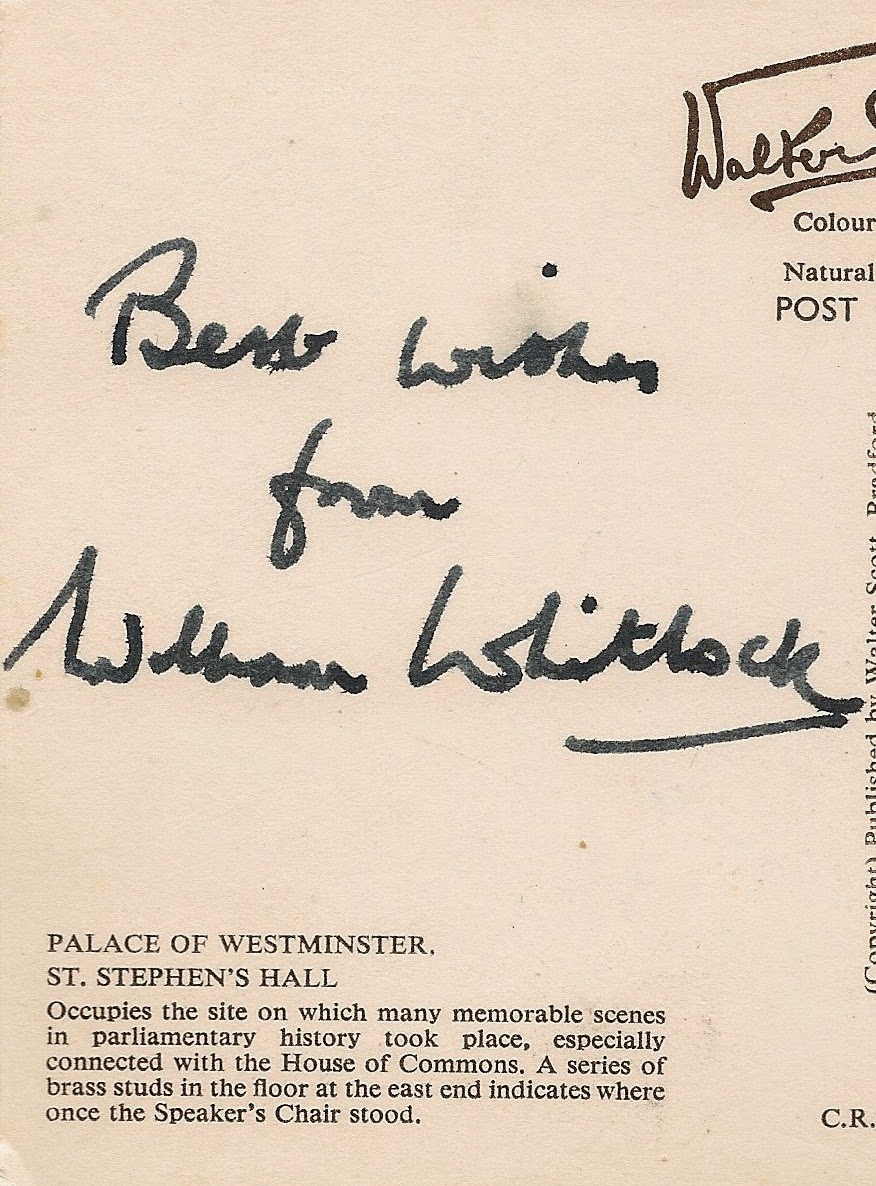 Walter
Colour
Natural
POST
Best wishes
from
William Whitlock
(Copyright) Published by Walter Scott, Bradford
PALACE OF WESTMINSTER.
ST. STEPHEN'S HALL
Occupies the site on which many memorable scenes
in parliamentary history took place, especially
connected with the House of Commons. A series of
brass studs in the floor at the east end indicates where
once the Speaker's Chair stood.
C.R.